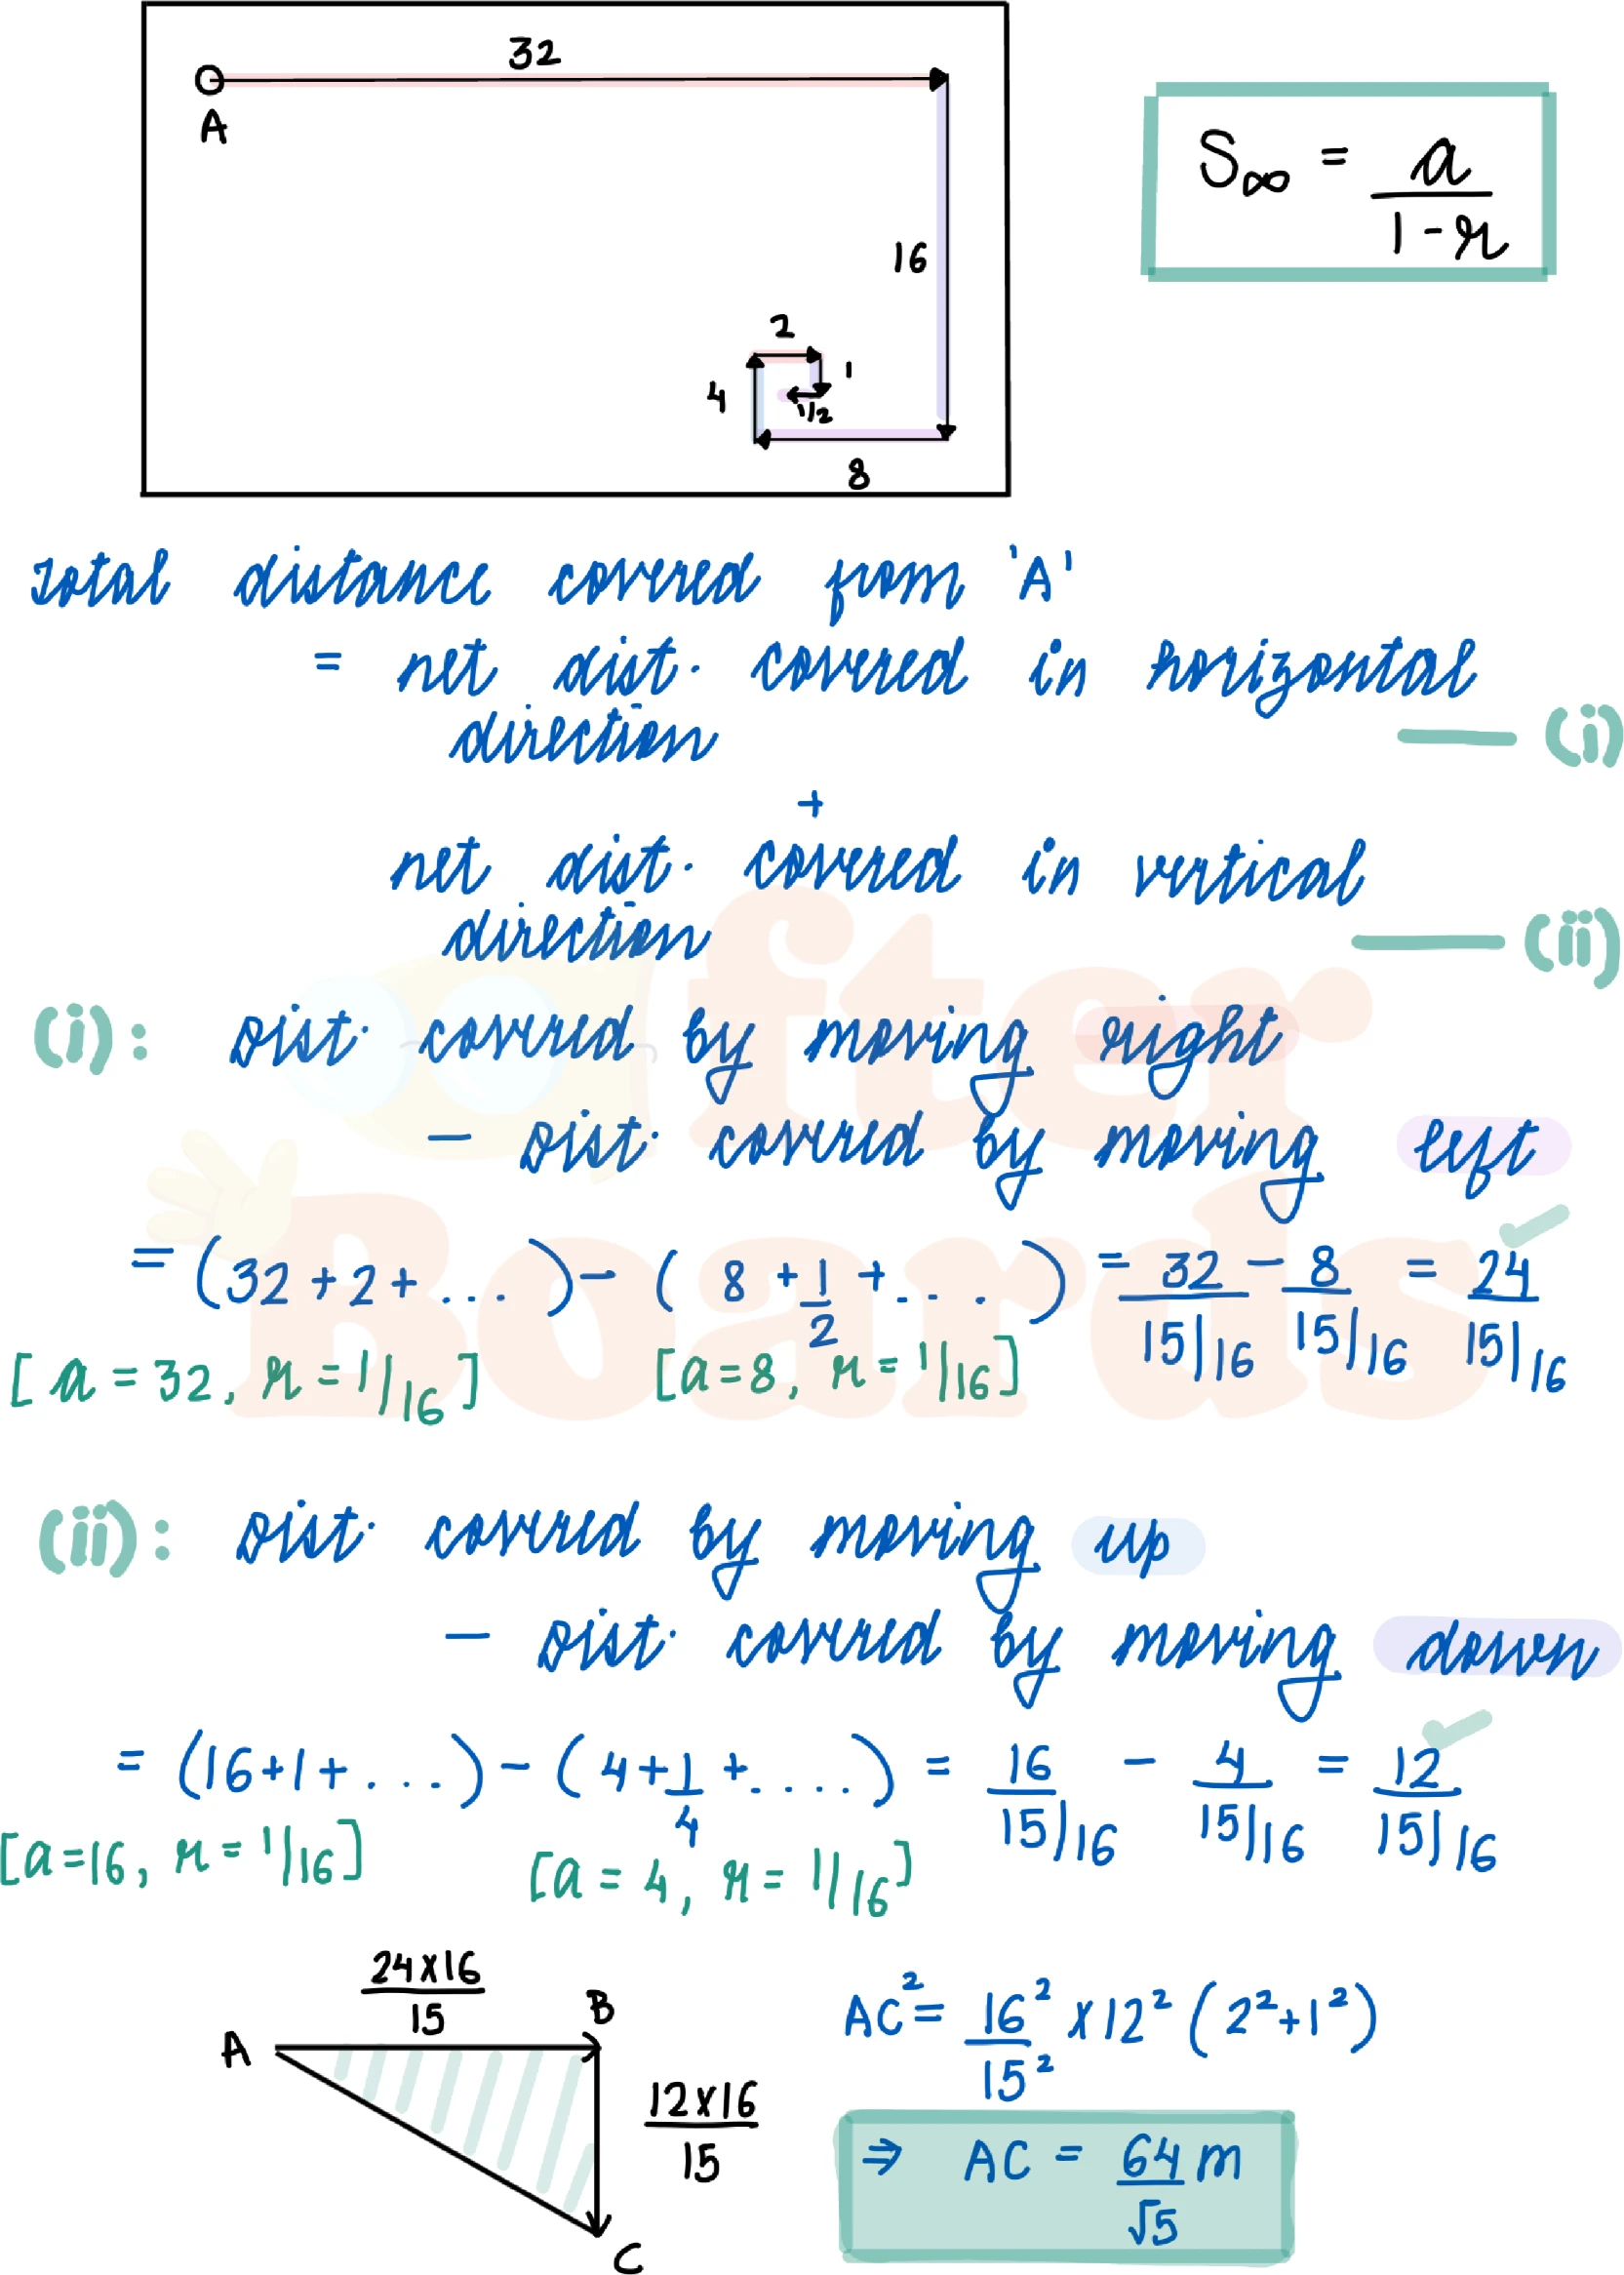 32
A
S∞ = a/(1-r)
16
2
1
4
1/2
8
Total distance covered from 'A'
= net dist. covered in horizontal
direction — (i)
+
net dist. covered in vertical
direction — (ii)
fter
Boards
(i): Dist. covered by moving right
- Dist. covered by moving left
= (32 + 2 + ... ) - ( 8 + 1/2 + ... ) = 32/(15/16) - 8/(15/16) = 24/(15/16)
[a = 32, r = 1/16] [a=8, r = 1/16]
(ii): Dist. covered by moving up
- Dist. covered by moving down
= (16+1+ ....) - (4+1/4 +.....) = 16/(15/16) - 4/(15/16) = 12/(15/16)
[a=16, r = 1/16] [a = 4, r = 1/16]
24x16/15
A
B
12x16/15
C
AC² = 16²/15² x 12² (2²+1²)
⇒ AC = 64/√5 m